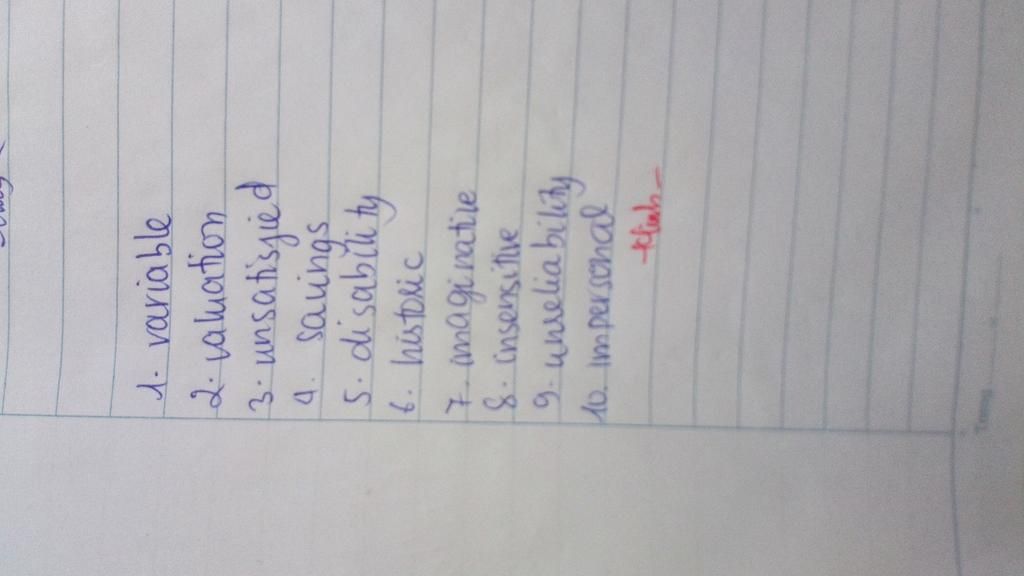 1. variable
2. valuation
3. unsatisfied
4. savings
5. disability
6. historic
7. imaginative
8. insensitive
9. unreliability
10. impersonal